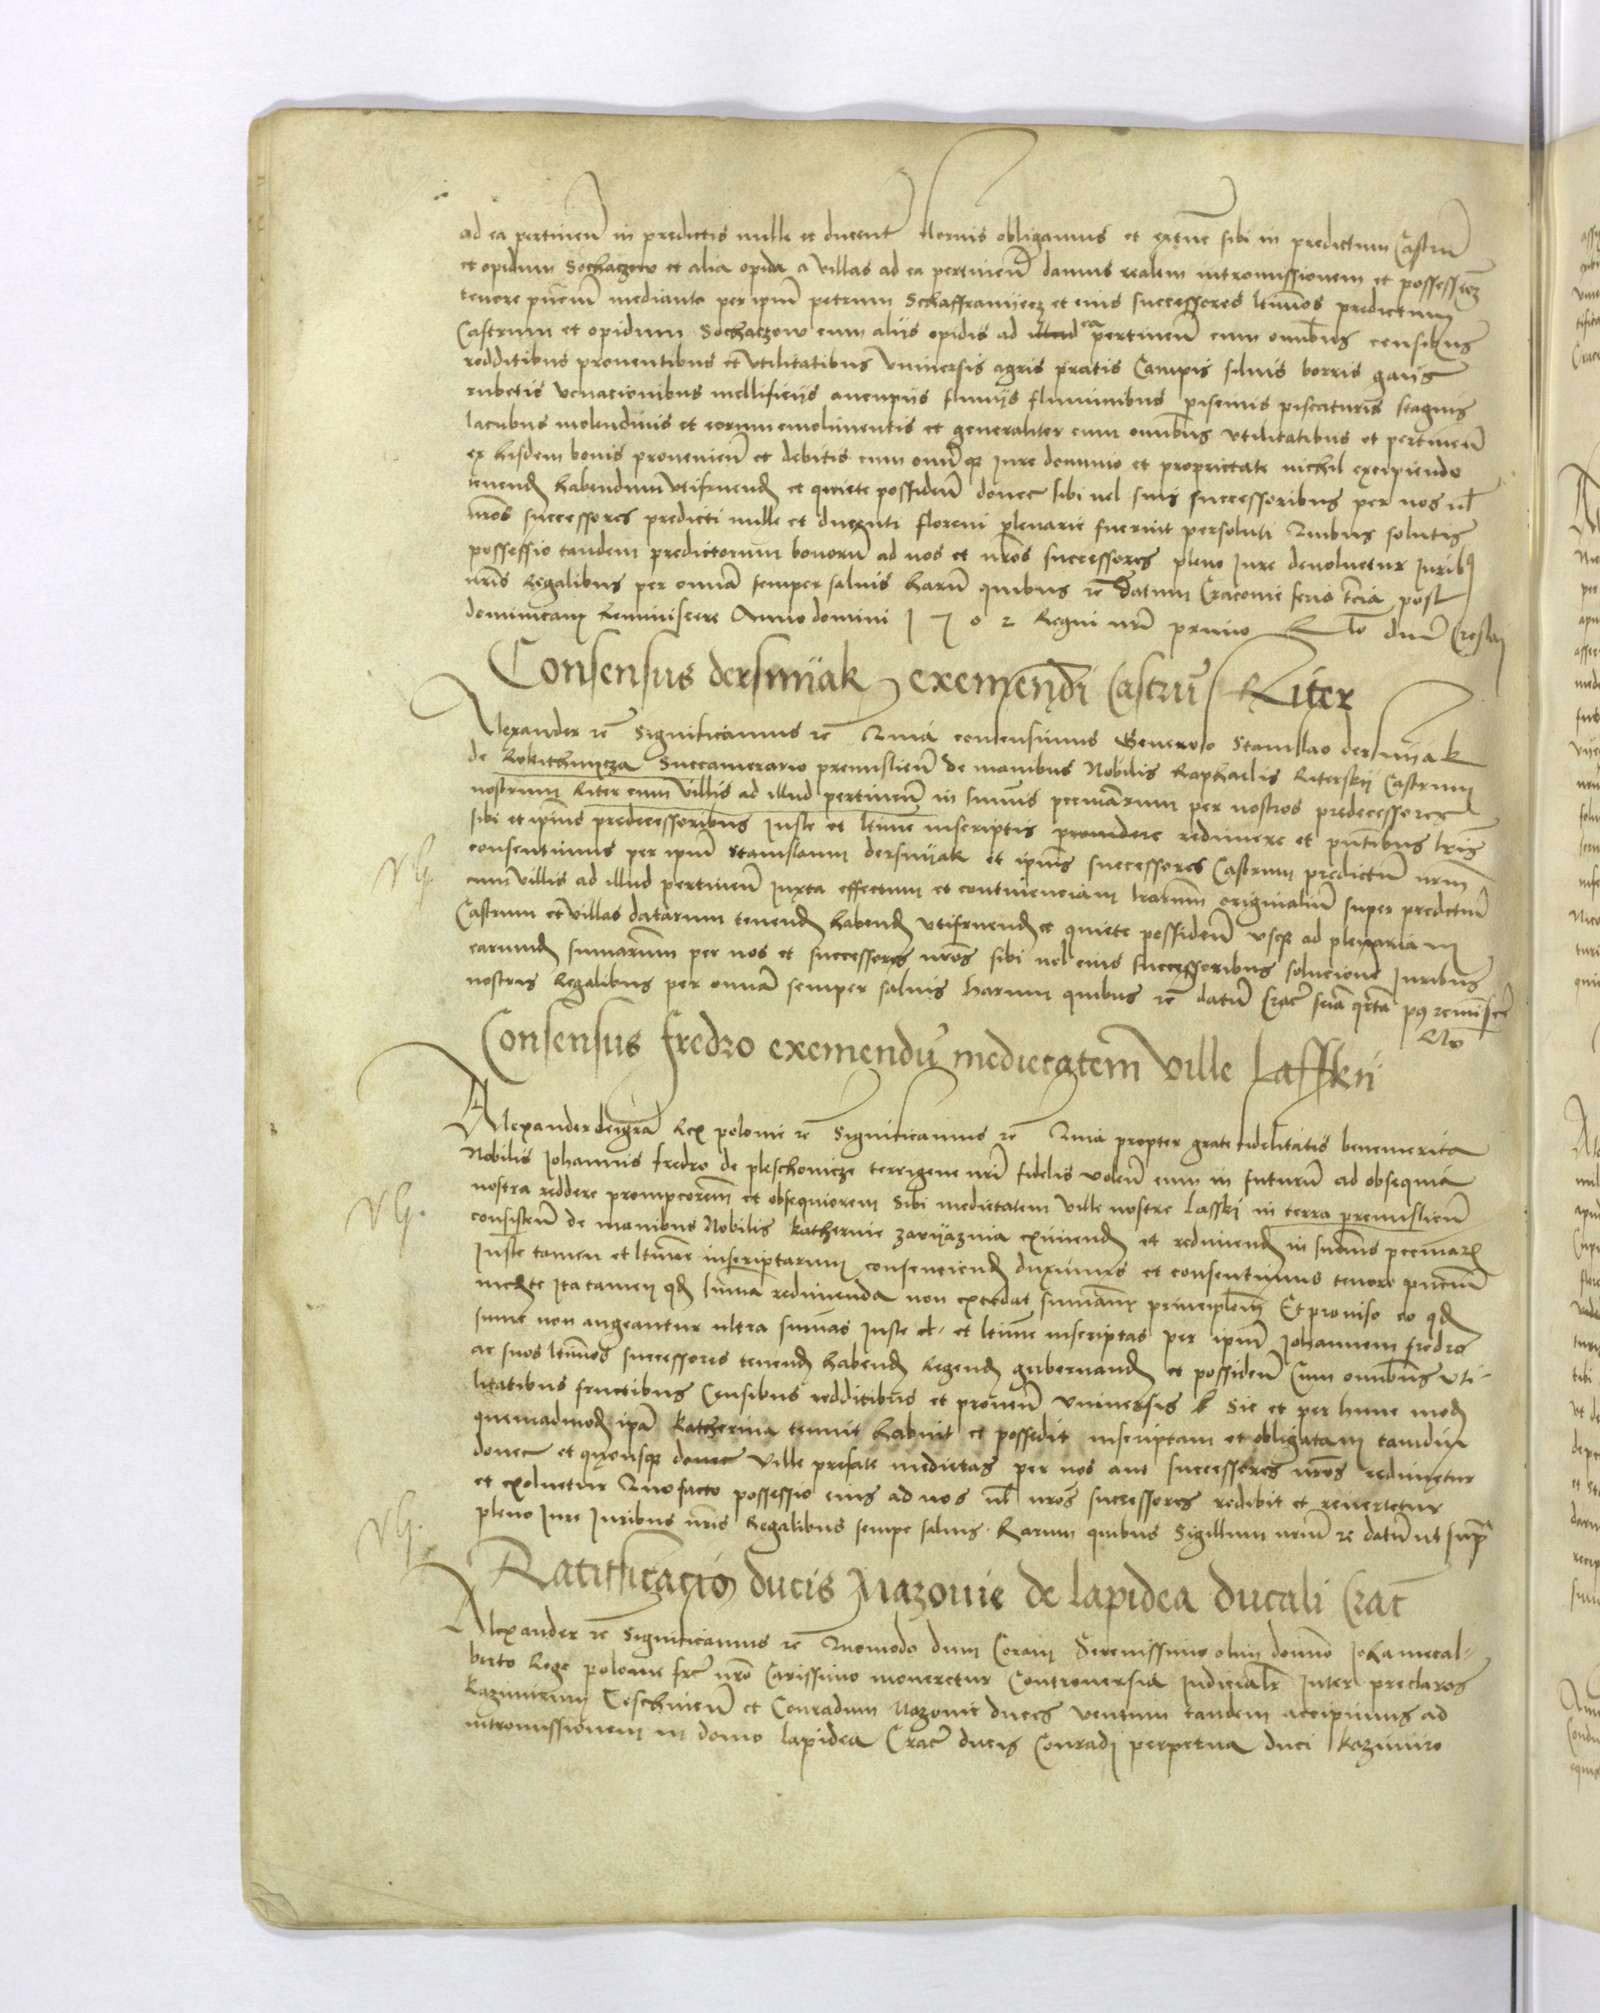 ad ea pertineñ in predictis mille et ducent florenis obligamus et sibi in predictum Castrū
et opidum Sochaczow et alia opida a villas ad ea pertineñ damus realem intromissionem et possessioē
tenore pñciū mediante per ipm̄ petrum Schaffranijecz et eius successores ltimos predictum
Castrum et opidum Sochaczow cum alijs opidis ad ea pertineñ cum omībus censibus
redditibus prouentibus et vtilitatibus vniuersis agris pratis Campis siluis borris gaijs
rubetis venacionibus mellificijs aucupijs fluuijs fluminibus piscinis piscaturis stagnis
lacubus molendinis et eorum emolimentis et generaliter cum omībus vtilitatibus et pertineñ
ex hisdem bonis prouenieñ et debitis cum omīque Iure dominio et proprietate nichil excipiendo
tenend habendum vtifruend et quiete possideñ donec sibi uel suis successoribus per nos ul
nr̄os successores predicti mille et ducenti floreni plenarie fuerint persoluti Quibus solutis
possessio tandem predictorum bonorū ad nos et nr̄os successores pleno Iure deuoluetur Iurib9
nr̄is Regalibus per omnia semper saluis harū quibus rc̄ Datum Cracouie feria tēia post
dominicam Reminiscere Anno domini 1 5 0 2 Regni nr̄i primo
Consensus dersnijak exemendi Castrū Riter
Alexander rc̄ Significamus rc̄ Quia consensimus Generoso Stanislao dersnijak
de Rokithnicza Succamerario premislieñ de manibus Nobilis Raphaelis Riterskij Castrum
nostrum Riter cum villis ad illud pertineñ in summis pecuniarum per nostros predecessores
sibi et ipius predecessoribus Iuste et ltime inscriptis redimere et pñtibus lr̄is
consentimus per ipm̄ Stanislaum dersnijak et ipius successores Castrum predictū nr̄m
VG.
cum villis ad illud pertineñ Iuxta effectum et continenciam lrarum originaliū super predictū
Castrum et villas datarum tenend habend vtifruend et quiete possideñ vsque ad plenariam
earumd summarum per nos et successores nr̄os sibi uel eius successoribus solucione Iuribus
nostris Regalibus per omnia semper saluis harum quibus rc̄ datū Crac feria qrta p9 reminscere
Consensus fredro exemendū medietatem ville Lasskij
Alexander dei gra Rex polonie rc̄ Significamus rc̄ Quia propter grate fidelitatis benemerita
Nobilis Johannis fredro de pleschowicze terrigene nr̄i fidelis voleñ eum in futurū ad obsequia
nostra reddere prompciorem et obsequiorem Sibi medietatem ville nostre Lasski in terra premislieñ
VG.
consisteñ de manibus Nobilis Katherine eximend et redimend in summis pecuniar
Iuste tamen et ltime inscriptarum consenciend duximus et consentimus tenore pñciū
mdte Ita tamen qd suma redimenda non excedat summam principalem Et prouiso eo qd
sume non augeantur ultra sumas Iuste et ltime inscriptas per ipm̄ Johannem fredro
ac suos ltimos successores tenend habend Regend gubernand et possideñ Cum omībus vti-
litatibus fructibus Censibus redditibus et proueñ vniuersis Sic et per hunc mod
quemadmod ipa Katherina tenuit habuit et possedit inscriptam et obligatam tamdiu
donec et quousque donec ville prefate medietas per nos aut successores nr̄os redimetur
et exoluetur Quo facto possessio eius ad nos ul nr̄os successores redibit et reuertetur
pleno Iure Iuribus nr̄is Regalibus sempe saluis Harum quibus Sigillum nr̄um rc̄ datū ut supra
VG.
Ratifficacio ducis Mazouie de lapidea ducali Crac
Alexander rc̄ Significamus rc̄ Quomodo dum Coram Serenissimo olim domno Johanneal-
berto Rege polonie frē nr̄o Carissimo moueretur Controuersia Iudicialr Inter preclaros
Kazimirum Teschineñ et Conradum Mazouie duces ventum tandem accipimus ad
intromissionem in domo lapidea Crac ducis Conradi perpetua duci Kazimiro